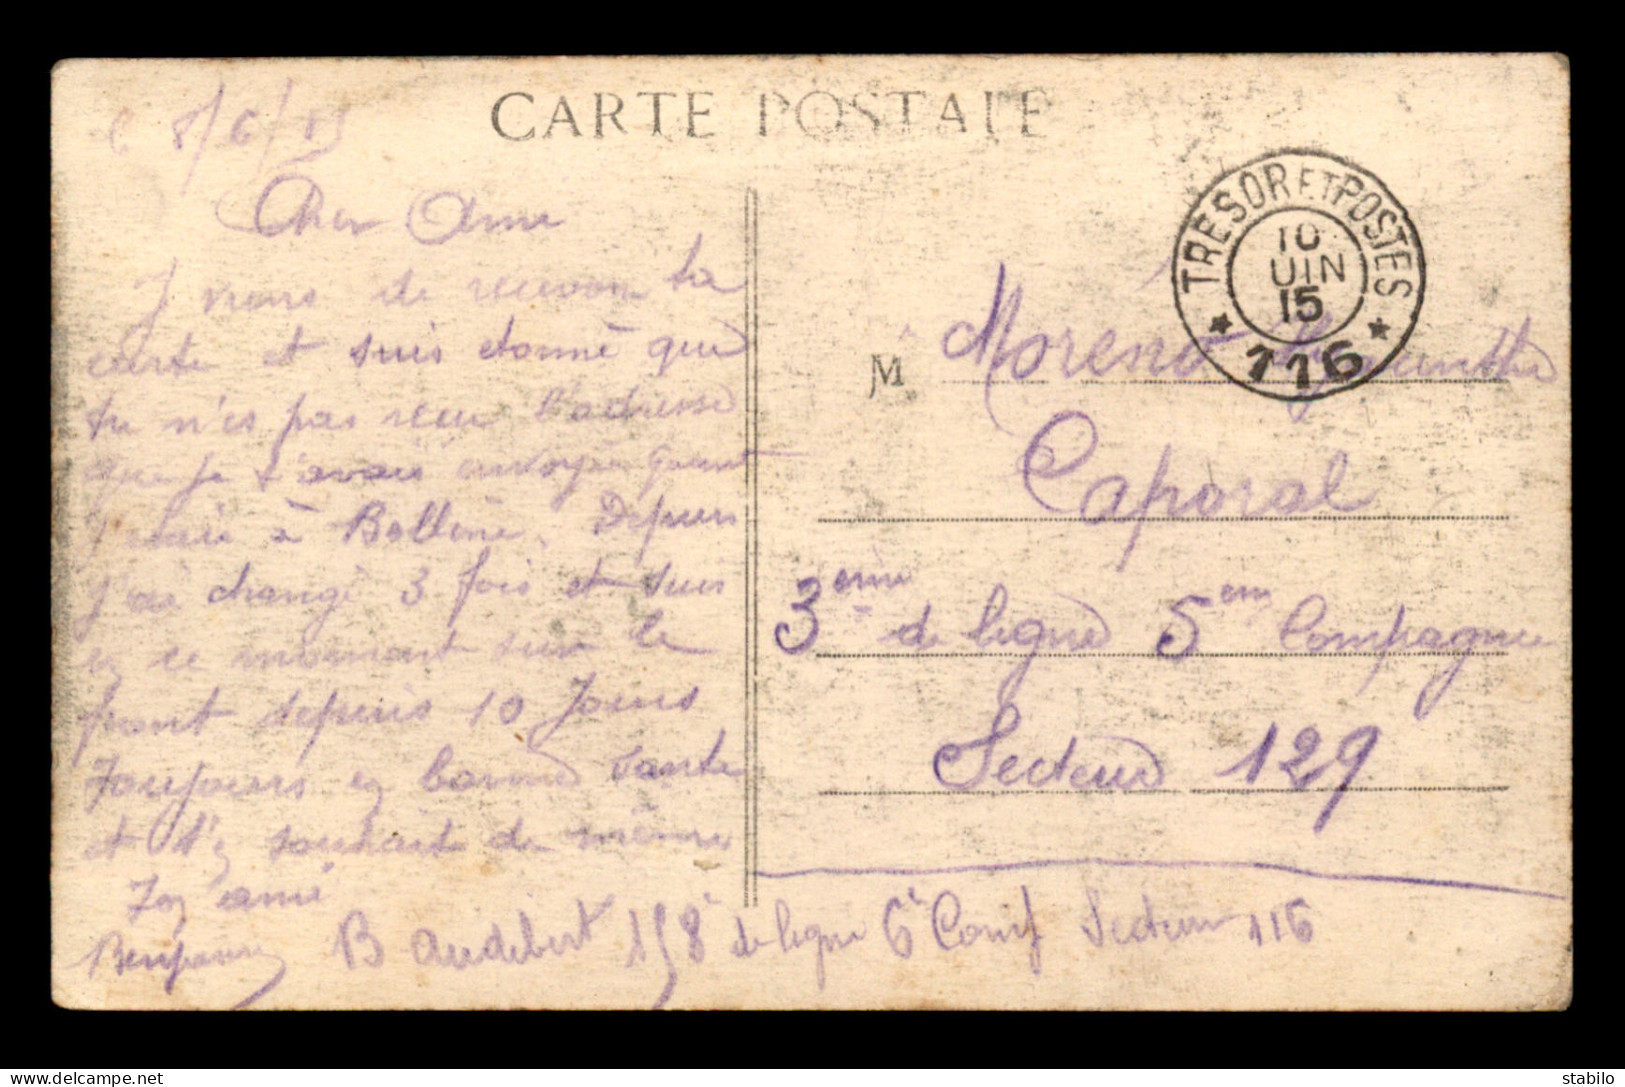 CARTE POSTALE
8/6/15
Cher Ami
J viens de recevoir ta
carte et suis etonné que
tu n'es pas recu l'adresse
que je t'avais envoyée quant
J'etais à Bollène. Depuis
J'ai changé 3 fois et suis
en ce moment sur le
front depuis 10 Jours
Toujours en bonne Santé
et t'en souhaite de même
Ton ami
Benjamin
B Audibert 158e de ligne 6e Comp Secteur 116
TRESOR ET POSTES
10
UIN
15
116
M Moreno
Caporal
3eme de ligne 5em Compagnie
Secteur 129
stabilo